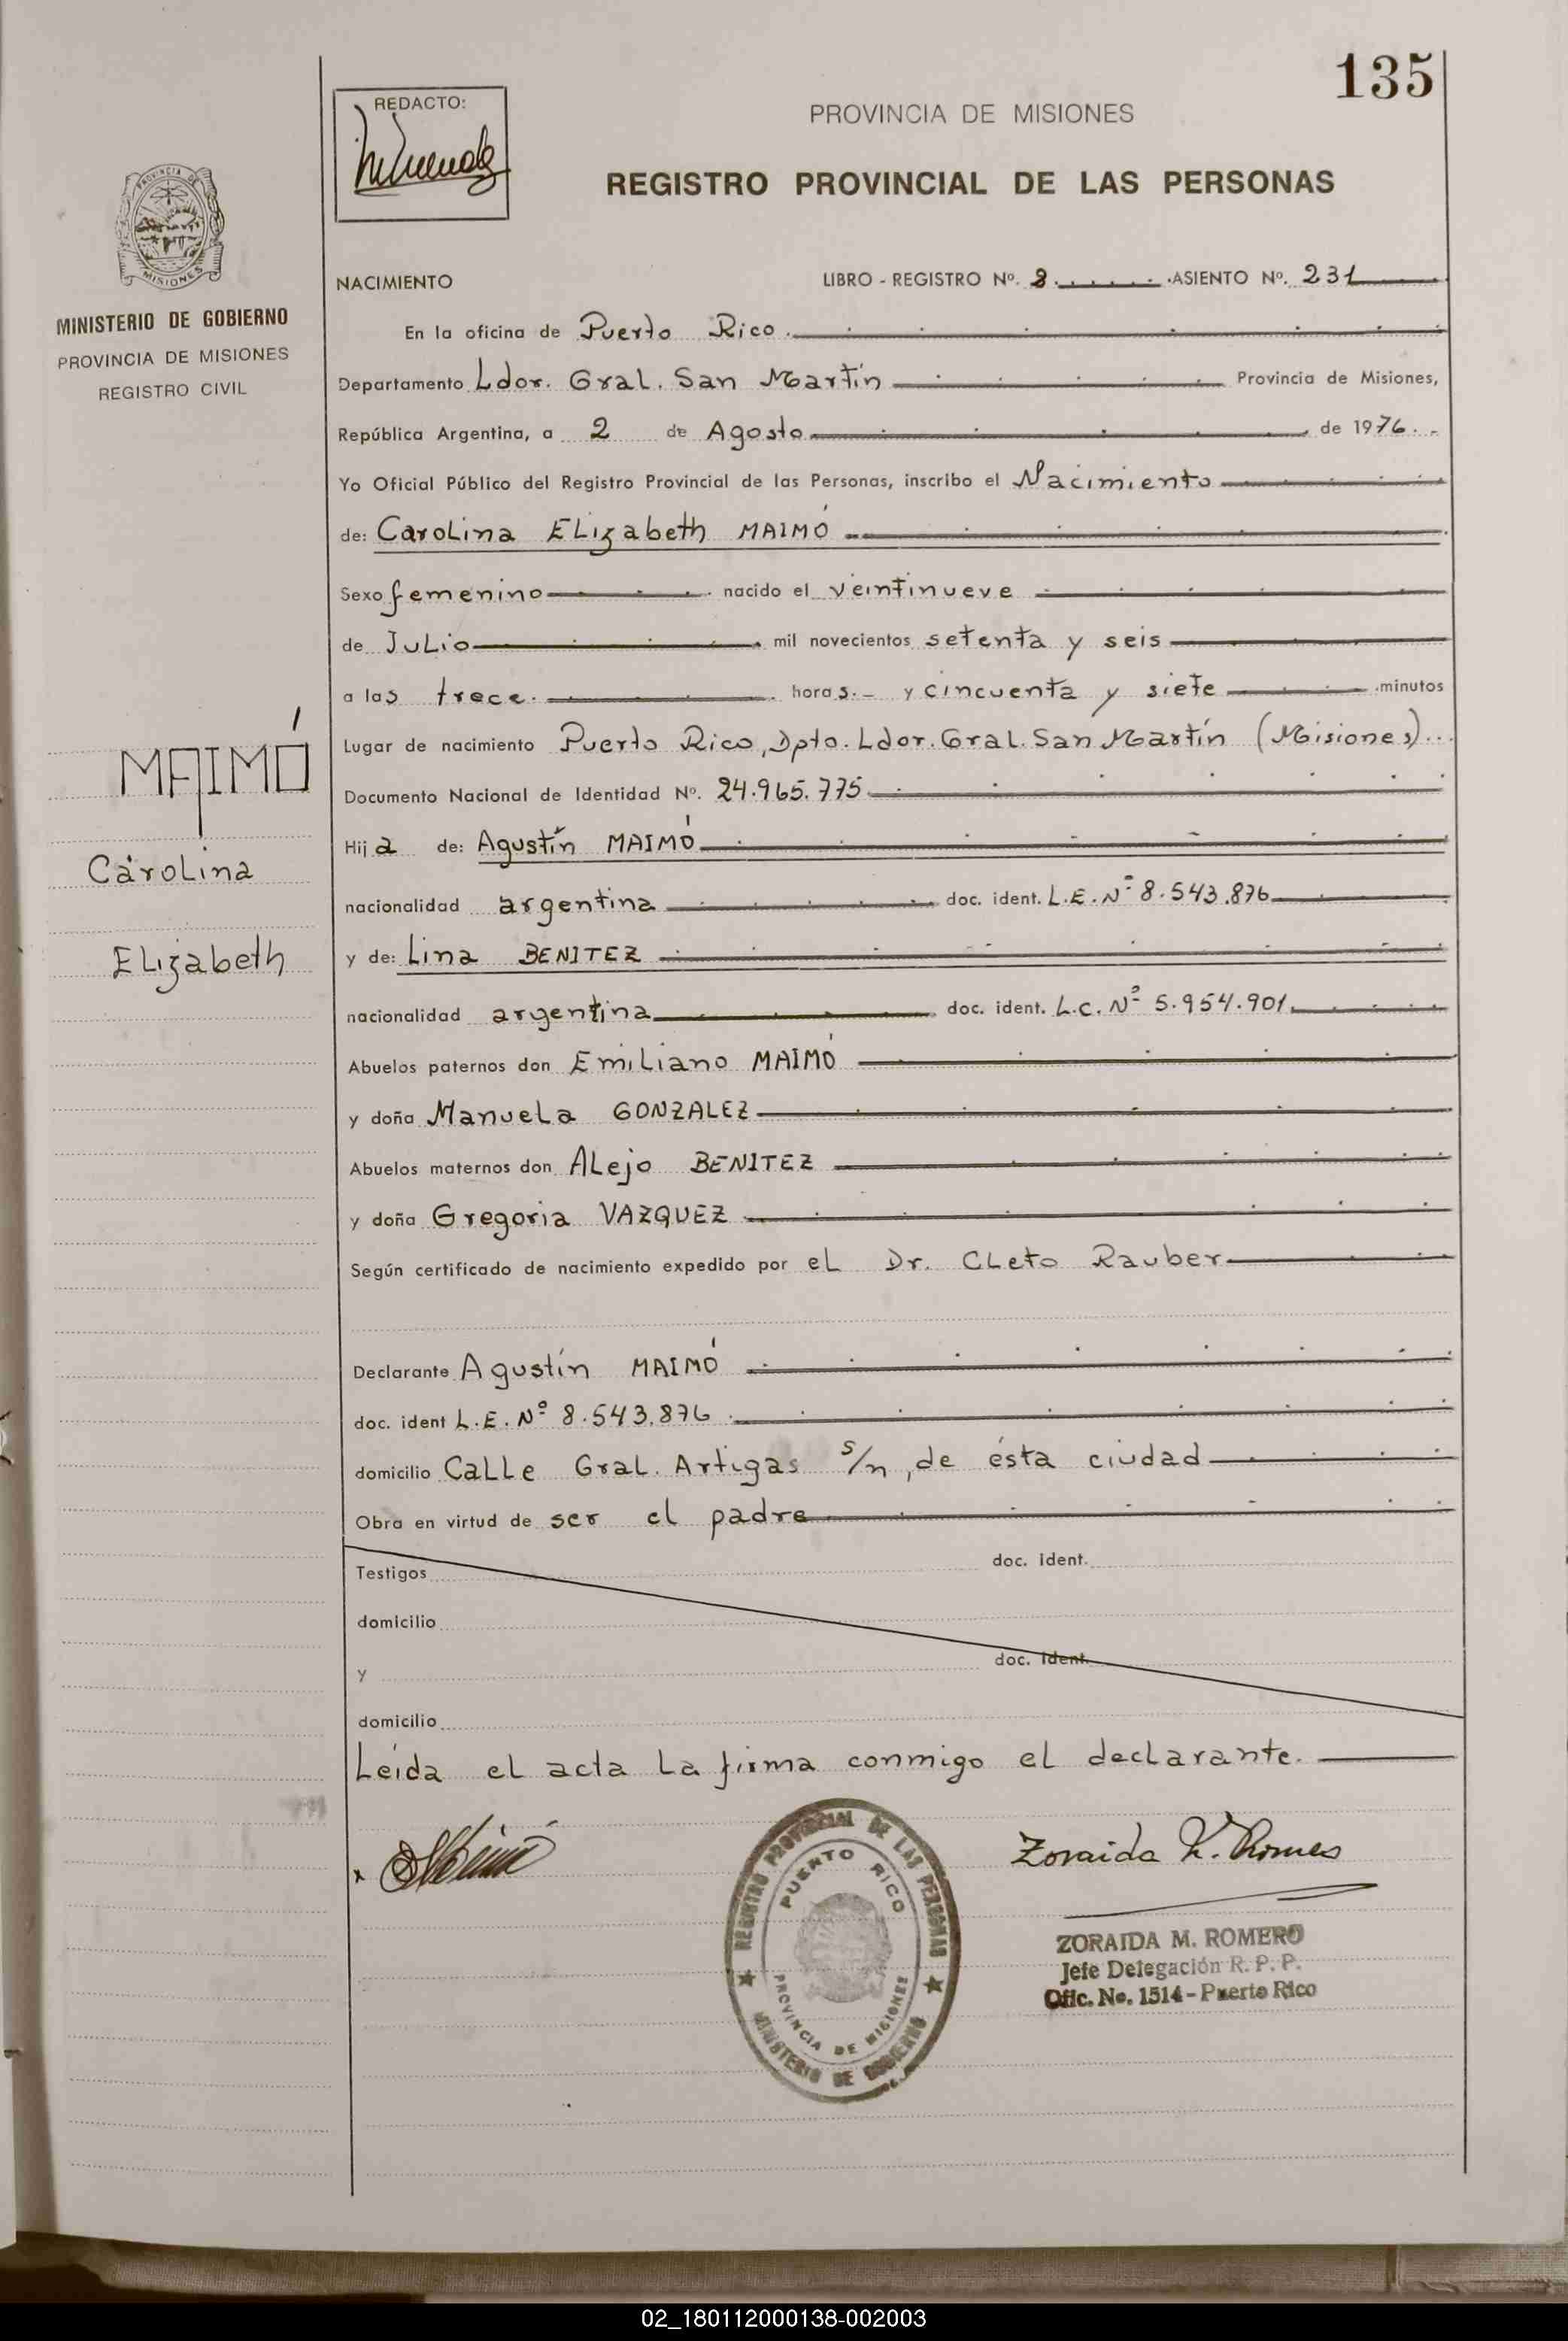 135
REDACTO:
PROVINCIA DE MISIONES
REGISTRO PROVINCIAL DE LAS PERSONAS
PROVINCIA DE
MISIONES
MINISTERIO DE GOBIERNO
PROVINCIA DE MISIONES
REGISTRO CIVIL
NACIMIENTO LIBRO - REGISTRO Nº. 8. ASIENTO Nº. 231
En la oficina de Puerto Rico.
Departamento Ldor. Gral. San Martín Provincia de Misiones,
República Argentina, a 2 de Agosto de 1976.-
Yo Oficial Público del Registro Provincial de las Personas, inscribo el Nacimiento
de: Carolina Elizabeth MAIMÓ
Sexo femenino nacido el veintinueve
de Julio mil novecientos setenta y seis
a las trece. horas.- y cincuenta y siete minutos
Lugar de nacimiento Puerto Rico, Dpto. Ldor. Gral. San Martín (Misiones)...
Documento Nacional de Identidad Nº. 24.965.775.
Hija de: Agustín MAIMÓ
nacionalidad argentina doc. ident. L.E. Nº 8.543.876
y de: Lina BENITEZ
nacionalidad argentina doc. ident. L.C. Nº 5.954.901
Abuelos paternos don Emiliano MAIMÓ
y doña Manuela GONZALEZ
Abuelos maternos don Alejo BENITEZ
y doña Gregoria VAZQUEZ
Según certificado de nacimiento expedido por el Dr. Cleto Rauber
Declarante Agustín MAIMÓ
doc. ident L.E. Nº 8.543.876
domicilio Calle Gral. Artigas s/n, de ésta ciudad
Obra en virtud de ser el padre
Testigos doc. ident.
domicilio
y doc. ident.
domicilio
Leída el acta la firma conmigo el declarante.
MAIMÓ
Carolina
Elizabeth
x
REGISTRO PROVINCIAL DE LAS PERSONAS
PUERTO RICO
PROVINCIA DE MISIONES
MINISTERIO DE GOBIERNO
Zoraida M. Romero
ZORAIDA M. ROMERO
Jefe Delegación R. P. P.
Ofic. No. 1514 - Puerto Rico
02_180112000138-002003